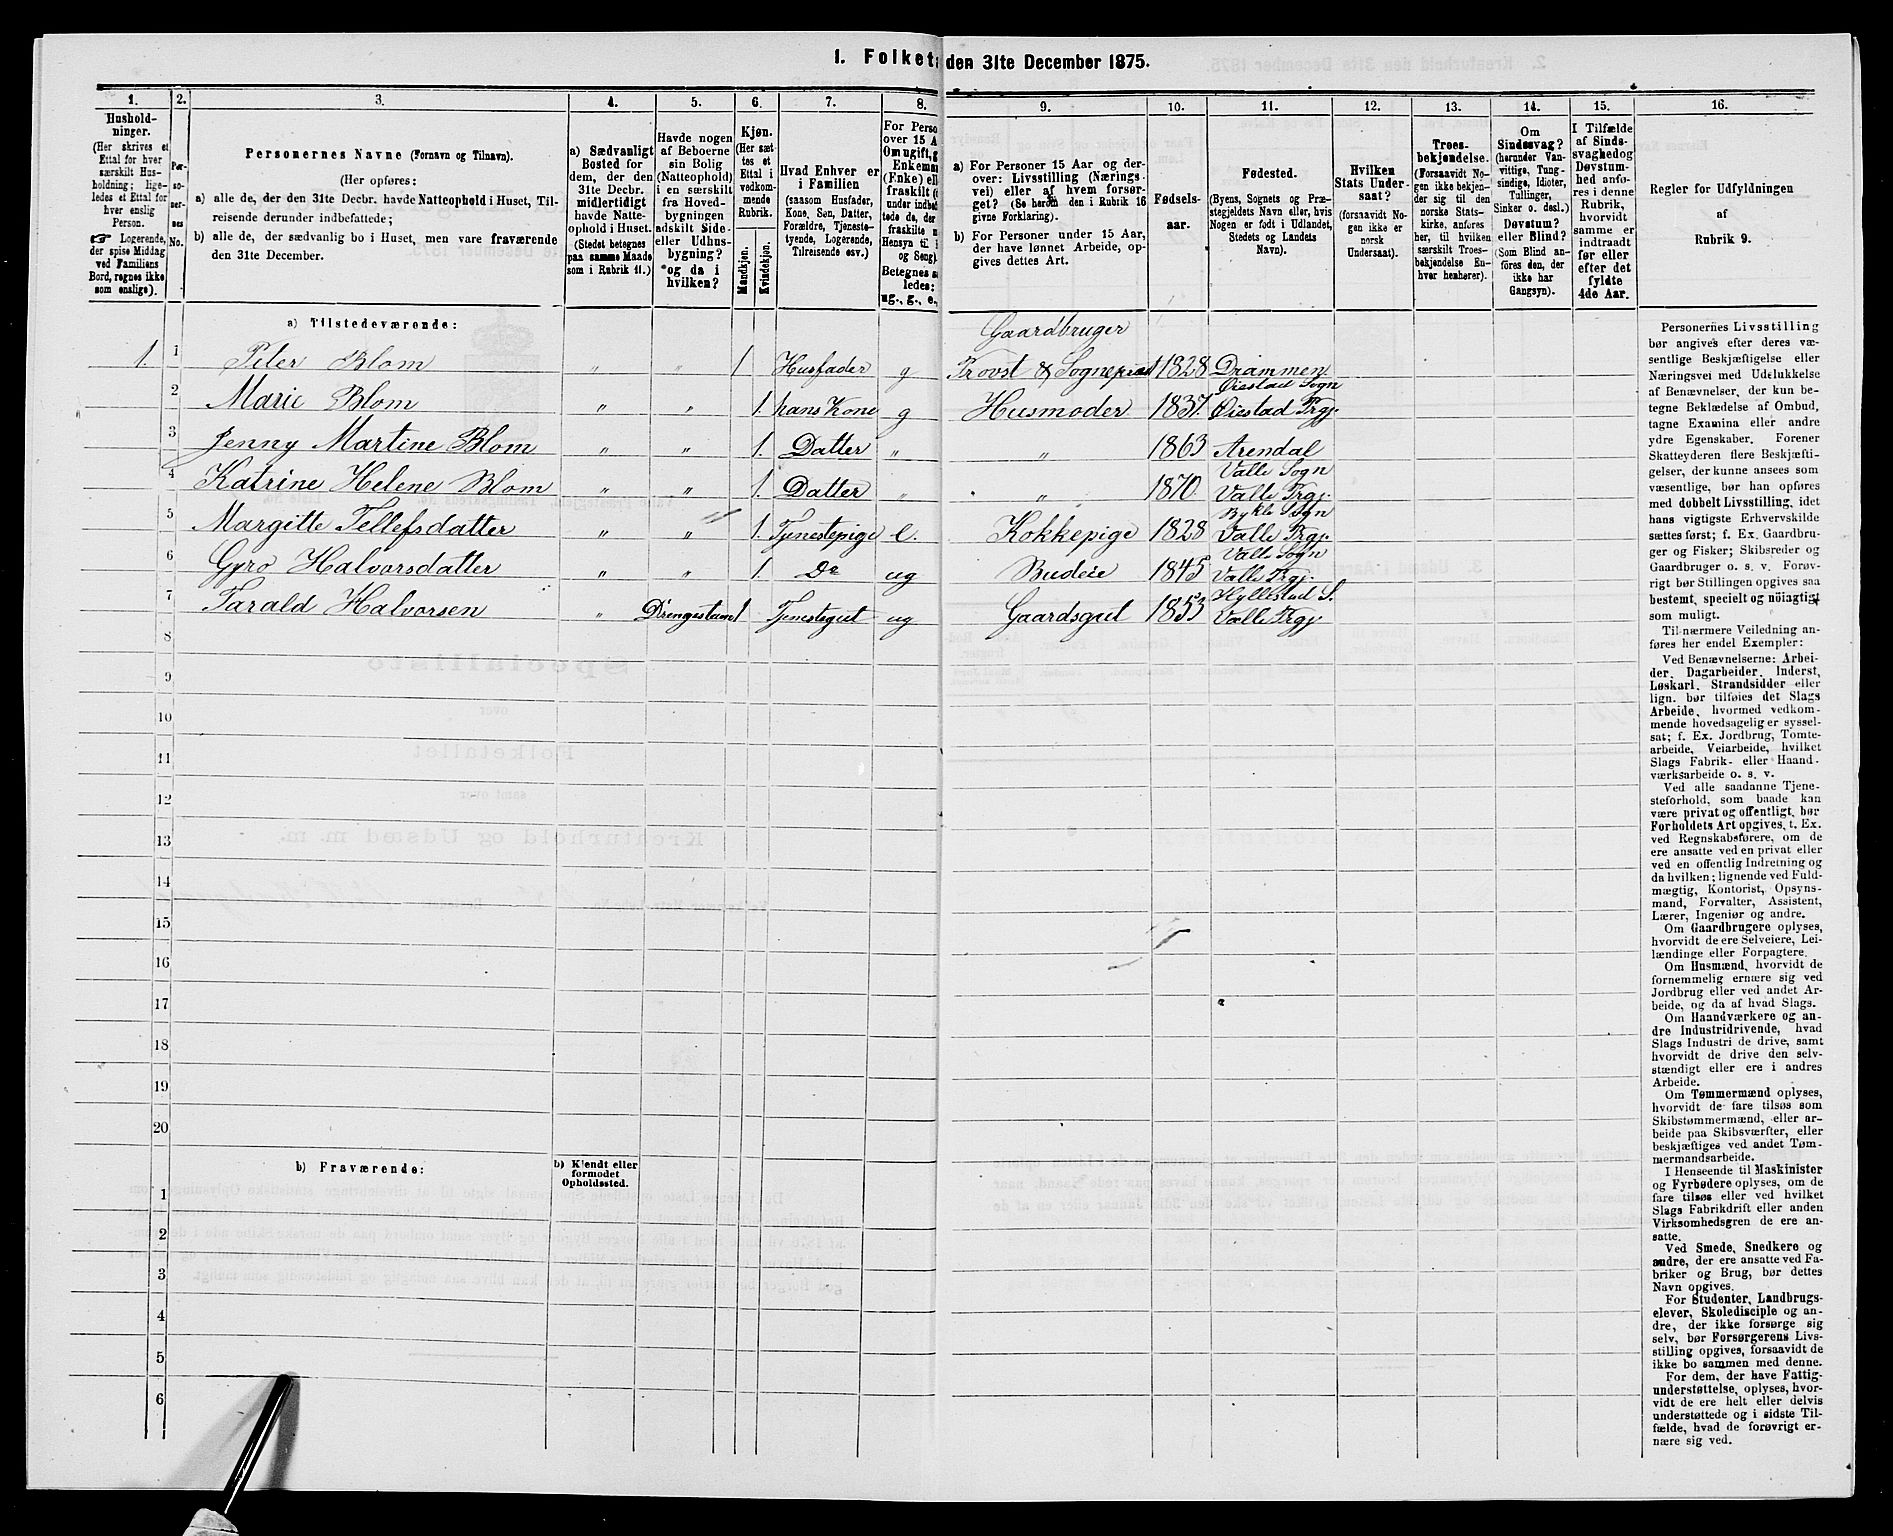 1. Folket den 31te December 1875.
1. 2. 3. 4. 5. 6. 7. 8. 9. 10. 11. 12. 13. 14. 15. 16.
Hushold-
ninger.
(Her skrives et
Ettal for hver
særskilt Hus-
holdning; lige-
ledes et Ettal for
hver enslig
Person.
☞ Logerende,
der spise Middag
ved Familiens
Bord, regnes ikke
som enslige).
Per-
so-
ner-
nes
No.
Personernes Navne (Fornavn og Tilnavn).
(Her opføres:
a) alle de, der den 31te Decbr. havde Natteophold i Huset, Til-
reisende derunder indbefattede;
b) alle de, der sædvanlig bo i Huset, men vare fraværende
den 31te December.
a) Sædvanligt
Bosted for
dem, der den
31te Decbr.
midlertidigt
havde Natte-
ophold i Huset.
(Stedet betegnes
paa samme Maade
som i Rubrik 11.)
Havde nogen
af Beboerne
sin Bolig
(Natteophold)
i en særskilt
fra Hoved-
bygningen
adskilt Side-
eller Udhus-
bygning?
og da i
hvilken?
Kjøn.
(Her sæt-
tes et
Ettal i
vedkom-
mende
Rubrik.
Mandkjøn.
Kvindekjøn.
Hvad Enhver er
i Familien
(saasom Husfader,
Kone, Søn, Datter,
Forældre, Tjeneste-
tyende, Logerende,
Tilreisende osv.)
For Perso
over 15 A
Om ugift, g
Enkeman
(Enke) ell
fraskilt (
under indbe
tede de, der
fraskilte
Hensyn til
og Seng).
Betegnes s
ledes:
ug., g., e.,
a) For Personer 15 Aar og der-
over: Livsstilling (Nærings-
vei) eller af hvem forsør-
get? (Se herom den i Rubrik 16
givne Forklaring).
b) For Personer under 15 Aar,
der have lønnet Arbeide, op-
gives dettes Art.
Fødsels-
aar.
Fødested.
(Byens, Sognets og Præ-
stegjeldets Navn eller, hvis
Nogen er født i Udlandet,
Stedets og Landets
Navn).
Hvilken
Stats Under-
saat?
(forsaavidt No-
gen ikke er
norsk
Undersaat).
Troes-
bekjendelse.
(Forsaavidt No-
gen ikke bekjen-
der sig til den
norske Stats-
kirke, anføres
her, til hvilken
særskilt Troes-
bekjendelse En-
hver henhører).
Om
Sindssvag?
(herunder Van-
vittige, Tung-
sindige, Idioter,
Tullinger,
Sinker o. desl.)
Døvstum?
eller Blind?
(Som Blind an-
føres den, der
ikke har
Gangsyn).
I Tilfælde
af Sinds-
svaghed og
Døvstum-
hed anfø-
res i denne
Rubrik,
hvorvidt
samme er
indtraadt
før eller
efter det
fyldte
4de Aar.
Regler for Udfyldningen
af
Rubrik 9.
a) Tilstedeværende:
Gaardbruger
1. 1 Peter Blom " " 1 Husfader g Provst & Sognepræst 1828 Drammen
Øiestad Sogn
2 Marie Blom " " 1. hans Kone g Husmoder 1837. Øiestad Prgj.
3 Jenny Martine Blom " " 1. Datter " " 1863 Arendal
Valle Sogn
4 Katrine Helene Blom " " 1. Datter " " 1870. Valle Prgj.
Bykle Sogn
5 Margitte Tellefsdatter " " 1. Tjenestepige e. Kokkepige 1828 Valle Prgj.
Valle Sogn
6 Gyro Halvorsdatter " " 1. Do ug Budeie 1845 Valle Prgj.
Hyllestad S.
7 Tarald Halvorsen " Drengestuen 1 Tjenestegut ug Gaardsgut 1853 Valle Prgj
8
9
10
11
12
13
14
15
16
17
18
19
20
b) Fraværende:
b) Kjendt eller
formodet
Opholdssted.
1
2
3
4
5
6
Personernes Livsstilling
bør angives efter deres væ-
sentlige Beskjæftigelse eller
Næringsvei med Udelukkelse
af Benævnelser, der kun be-
tegne Beklædelse af Ombud,
tagne Examina eller andre
ydre Egenskaber. Forener
Skatteyderen flere Beskjæfti-
gelser, der kunne ansees som
væsentlige, bør han opføres
med dobbelt Livsstilling, idet
hans vigtigste Erhvervskilde
sættes først; f. Ex. Gaardbru-
ger og Fisker; Skibsreder og
Gaardbruger o. s. v. Forøv-
rigt bør Stillingen opgives saa
bestemt, specielt og nøiagtigt
som muligt.
Til nærmere Veiledning an-
føres her endel Exempler:
Ved Benævnelserne: Arbei-
der, Dagarbeider, Inderst,
Løskarl, Strandsidder eller
lign. bør tilføies det Slags
Arbeide, hvormed vedkom-
mende hovedsagelig er syssel-
sat; f. Ex. Jordbrug, Tomte-
arbeide, Veiarbeide, hvilket
Slags Fabrik- eller Haand-
værksarbeide o. s. v.
Ved alle saadanne Tjene-
steforhold, som baade kan
være privat og offentligt, bør
Forholdets Art opgives, t. Ex.
ved Regnskabsførere, om de
ere ansatte ved en privat eller
ved en offentlig Indretning og
da hvilken; lignende ved Fuld-
mægtig, Kontorist, Opsyns-
mand, Forvalter, Assistent,
Lærer, Ingeniør og andre.
Om Gaardbrugere oplyses,
hvorvidt de ere Selveiere, Lei-
lændinge eller Forpagtere.
Om Husmænd, hvorvidt de
fornemmelig ernære sig ved
Jordbrug eller ved andet Ar-
beide, og da af hvad Slags.
Om Haandværkere og an-
dre Industridrivende, hvad
Slags Industri de drive, samt
hvorvidt de drive den selv-
stændigt eller ere i andres
Arbeide.
Om Tømmermænd oplyses,
hvorvidt de fare tilsøs som
Skibstømmermænd, eller ar-
beide paa Skibsværfter, eller
beskjæftiges ved andet Tøm-
mermandsarbeide.
I Henseende til Maskinister
og Fyrbødere oplyses, om de
fare tilsøs eller ved hvilket
Slags Fabrikdrift eller anden
Virksomhedsgren de ere an-
satte.
Ved Smede, Snedkere og
andre, der ere ansatte ved Fa-
briker og Brug, bør dettes
Navn opgives.
For Studenter, Landbrugs-
elever, Skoledisciple og an-
dre, der ikke forsørge sig
selv, bør Forsørgerens Livs-
stilling opgives, forsaavidt de
ikke bo sammen med denne.
For dem, der have Fattig-
understøttelse, oplyses, hvor-
vidt de ere helt eller delvis
understøttede og i sidste Til-
fælde, hvad de forøvrigt er-
nære sig ved.